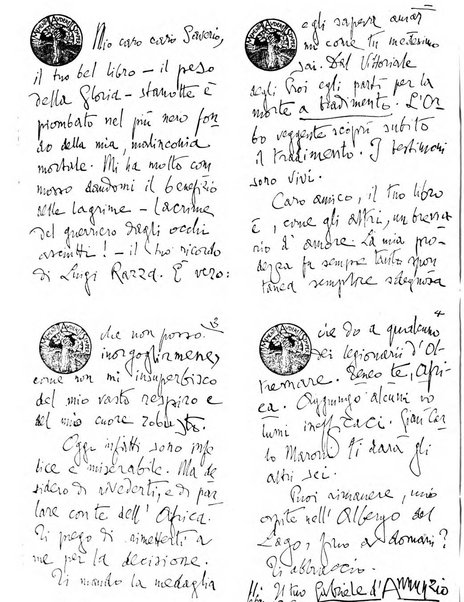 Mio caro caro Saverio,
il tuo bel libro – il peso
della Gloria – stanotte è
piombato nel più nero fon-
do della mia malinconia
mortale. Mi ha molto com-
mosso dandomi il benefizio
delle lagrime – lacrime
del guerriero dagli occhi
asciutti! – il tuo ricordo
di Luigi Razza. È vero:
egli sapeva amar
mi come tu medesimo
sai. Dal Vittoriale
degli Eroi egli partì per la
morte a tradimento. L'Or-
bo veggente scoprì subito
il tradimento. I testimoni
sono vivi.
Caro amico, il tuo libro
è, come gli altri, un brevia-
rio d'amore. La mia pro-
dezza fu sempre tanto spon-
tanea sempre sdegnosa
3
che non posso
inorgoglirmene,
come non mi insuperbisco
del mio vasto respiro e
del mio cuore robusto.
Oggi infatti sono infe-
lice e miserabile. Ma de-
sidero di rivederti, e di par-
lare con te dell'Africa.
Ti prego di rimetterti a
me per la decisione.
Ti mando la medaglia
4
che do a qualcuno
dei legionarii d'Ol-
tremare. Teneo te, Afri-
ca. Aggiungo alcuni vo-
lumi inefficaci. Gian Car-
lo Maroni ti darà gli
altri sei.
Puoi rimanere, mio
ospite nell'Albergo del
Lago, fino a domani?
Ti abbraccio.
Il tuo Gabriele d'Annunzio